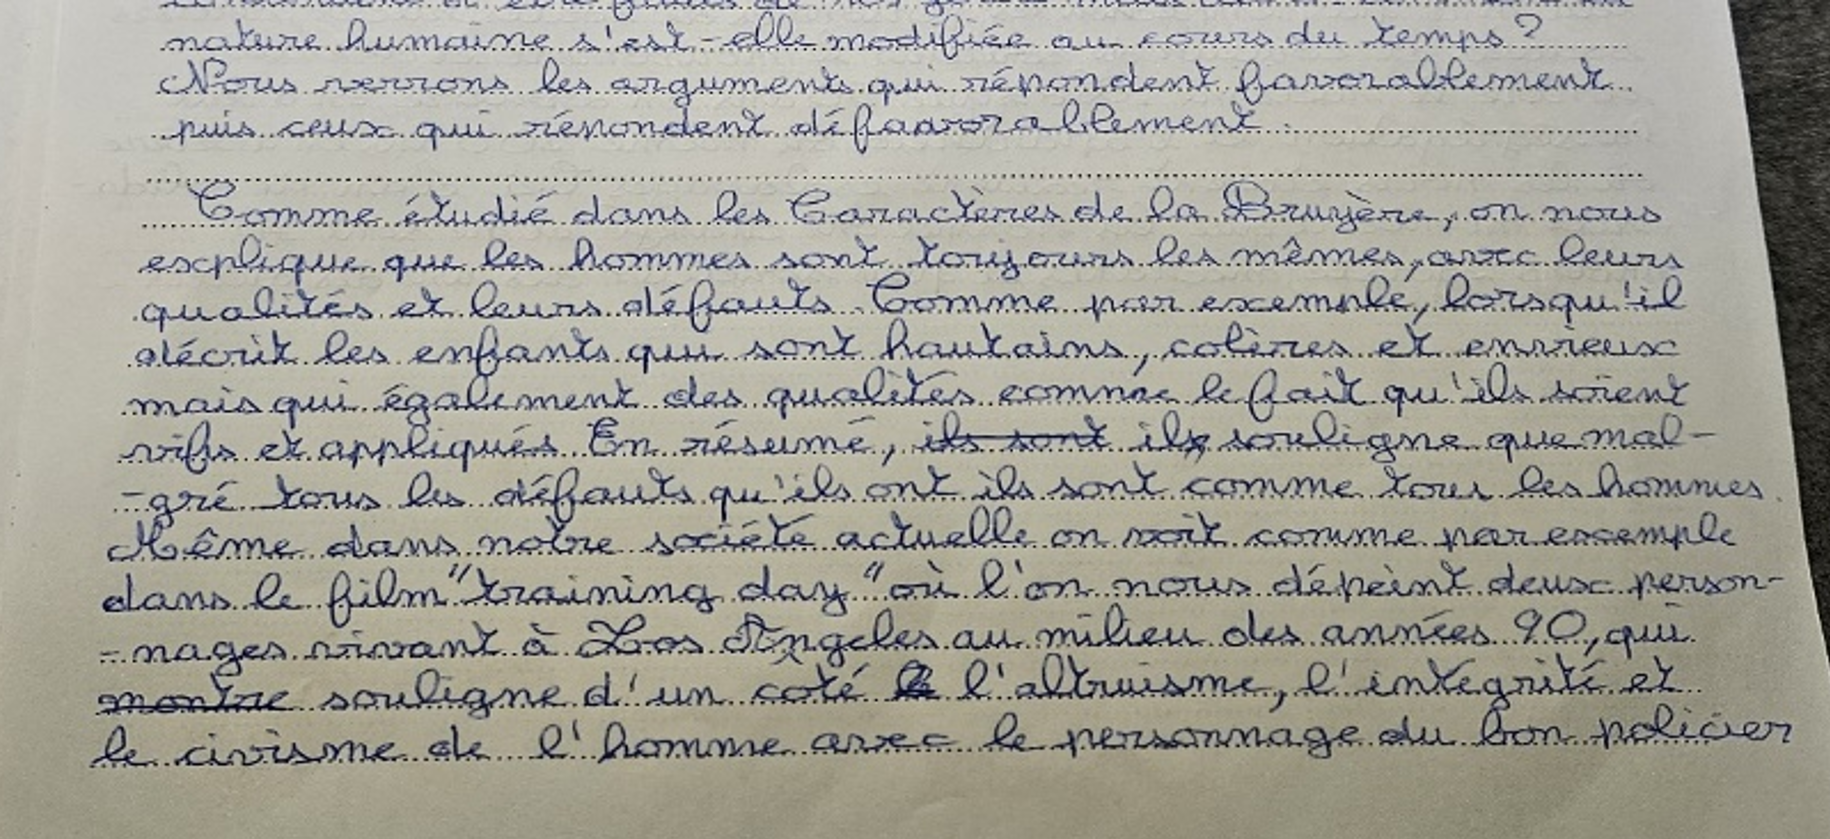 nature humaine s'est-elle modifiée au cours du temps ?
Nous verrons les arguments qui répondent favorablement
puis ceux qui répondent défaavorablement.
Comme étudié dans les Caractères de la Bruyère, on nous
explique que les hommes sont toujours les mêmes, avec leurs
qualités et leurs défauts. Comme par exemple, lorsqu'il
décrit les enfants qui sont hautains, colères et envieux
mais qui également des qualités comme le fait qu'ils soient
vifs et appliqués. En résumé, ils sont il souligne que mal-
-gré tous les défauts qu'ils ont ils sont comme tous les hommes.
Même dans notre société actuelle on voit comme par exemple
dans le film "training day" où l'on nous dépeint deux person-
-nages vivant à Los Angeles au milieu des années 90, qui
montre souligne d'un coté l'altruisme, l'intégrité et
le civisme de l'homme avec le personnage du bon policier